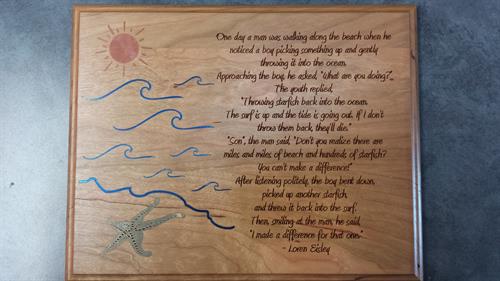 One day a man was walking along the beach when he
noticed a boy picking something up and gently
throwing it into the ocean.
Approaching the boy, he asked, "What are you doing?"
The youth replied,
"Throwing starfish back into the ocean.
The surf is up and the tide is going out. If I don't
throw them back, they'll die."
"Son", the man said, "Don't you realize there are
miles and miles of beach and hundreds of starfish?
You can't make a difference!"
After listening politely, the boy bent down,
picked up another starfish,
and threw it back into the surf.
Then, smiling at the man, he said,
"I made a difference for that one."
- Loren Eisley